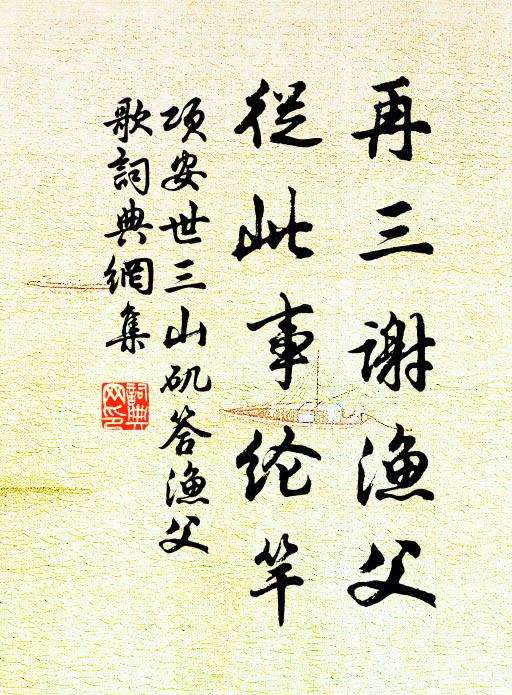 再三謝漁父
從此事纶竿
项安世三山矶答漁父
歌詞典網集
詞典网印